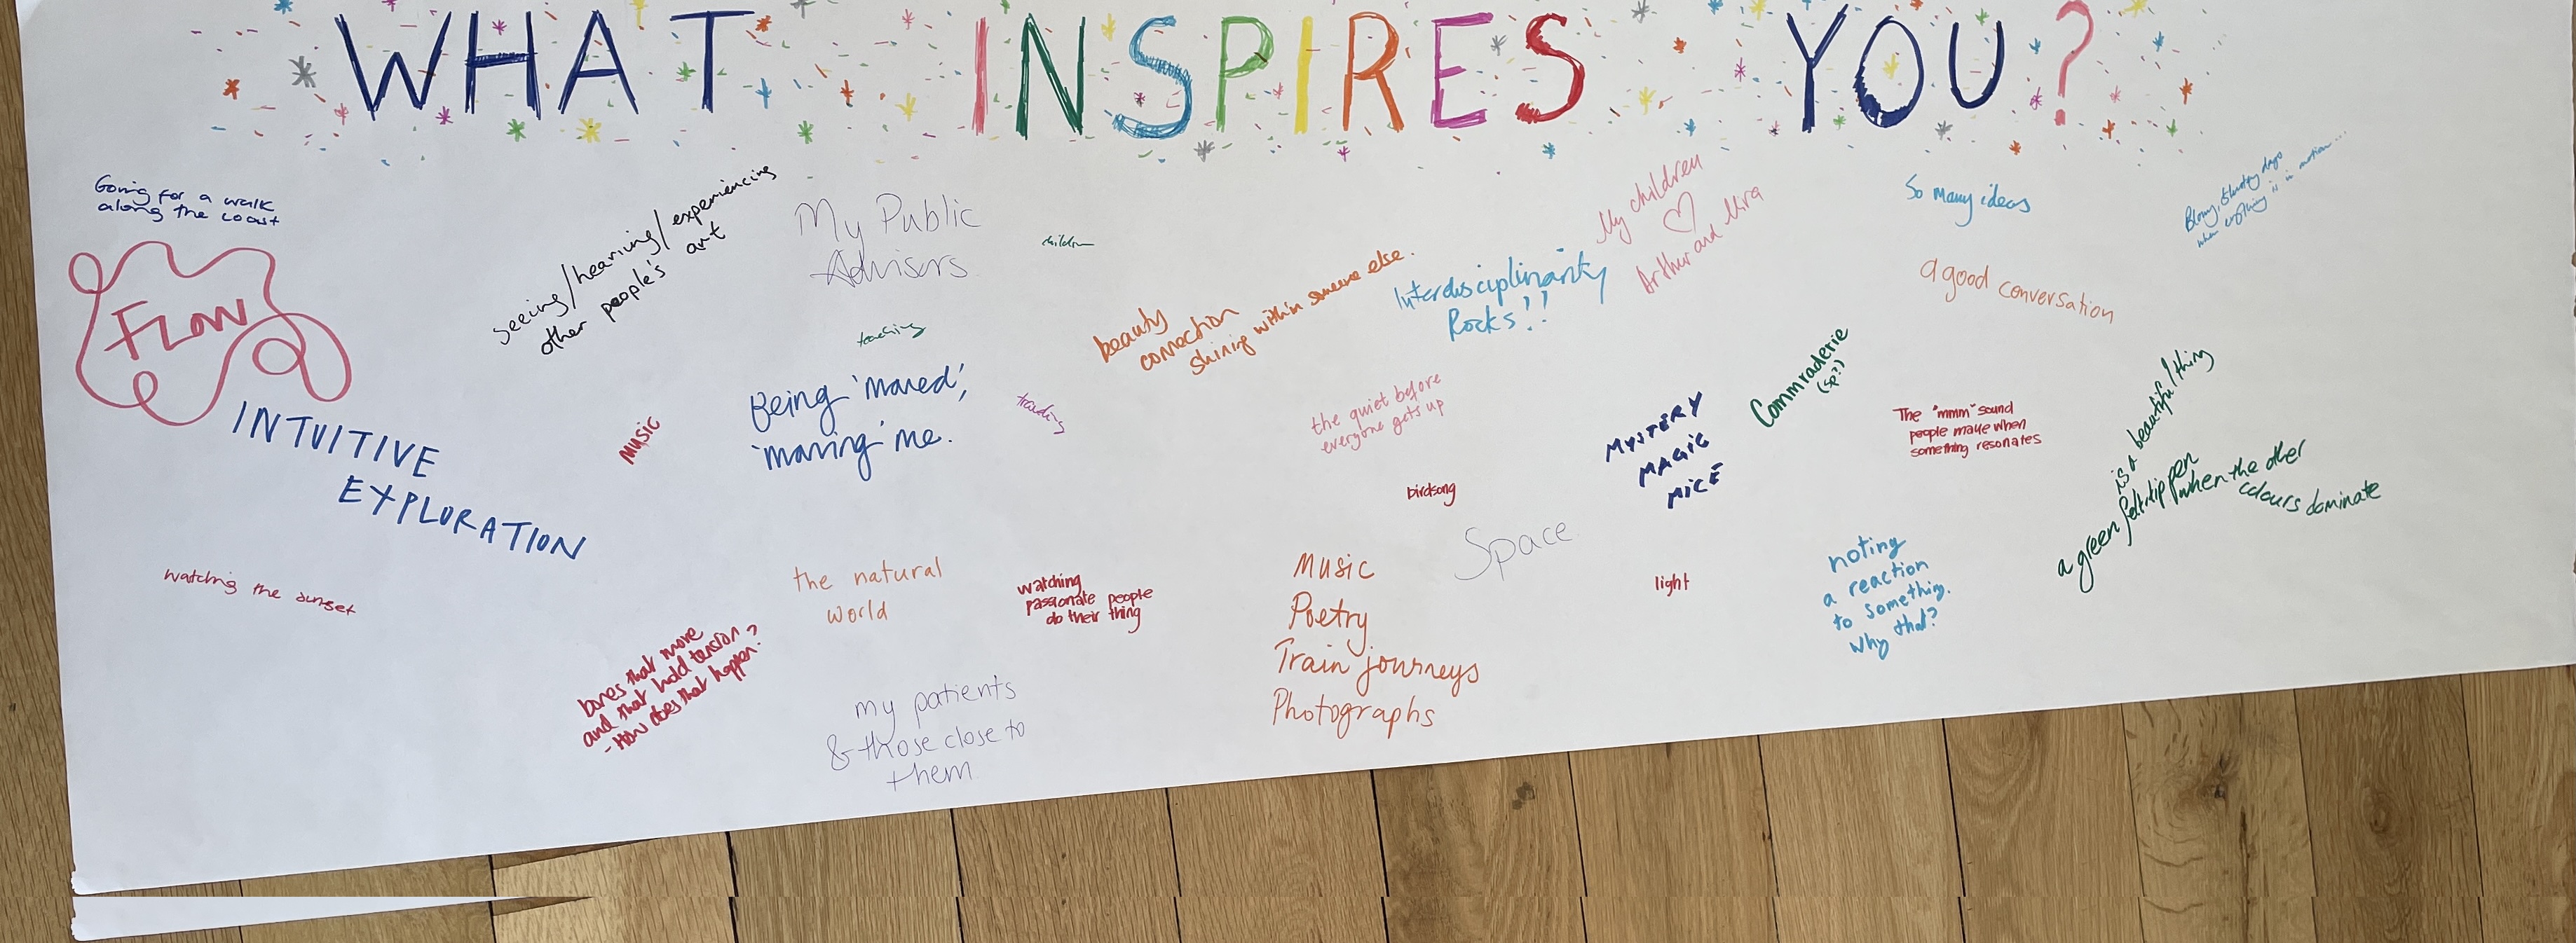 WHAT INSPIRES YOU?
Going for a walk
along the coast
FLOW
INTUITIVE
EXPLORATION
watching the sunset
seeing/hearing/experiencing
other people's art
MUSIC
bones that move
and that hold tension
- How does that happen?
My Public
Advisors
teaching
Being 'moved',
'moving' me.
the natural
world
my patients
& those close to
them
children
beauty
connection
shining within someone else.
watching
passionate people
do their thing
Interdisciplinarity
Rocks!!
the quiet before
everyone gets up
birdsong
Space
Music
Poetry
Train journeys
Photographs
My children
♡
Arthur and Mira
MYSTERY
MAGIC
MICE
light
Commraderie
(sp?)
So many ideas
a good conversation
The "mmm" sound
people make when
something resonates
noting
a reaction
to something.
Why that?
Blowy, blustery days
when everything is in motion...
a green felt tip pen
is a beautiful thing
when the other
colours dominate